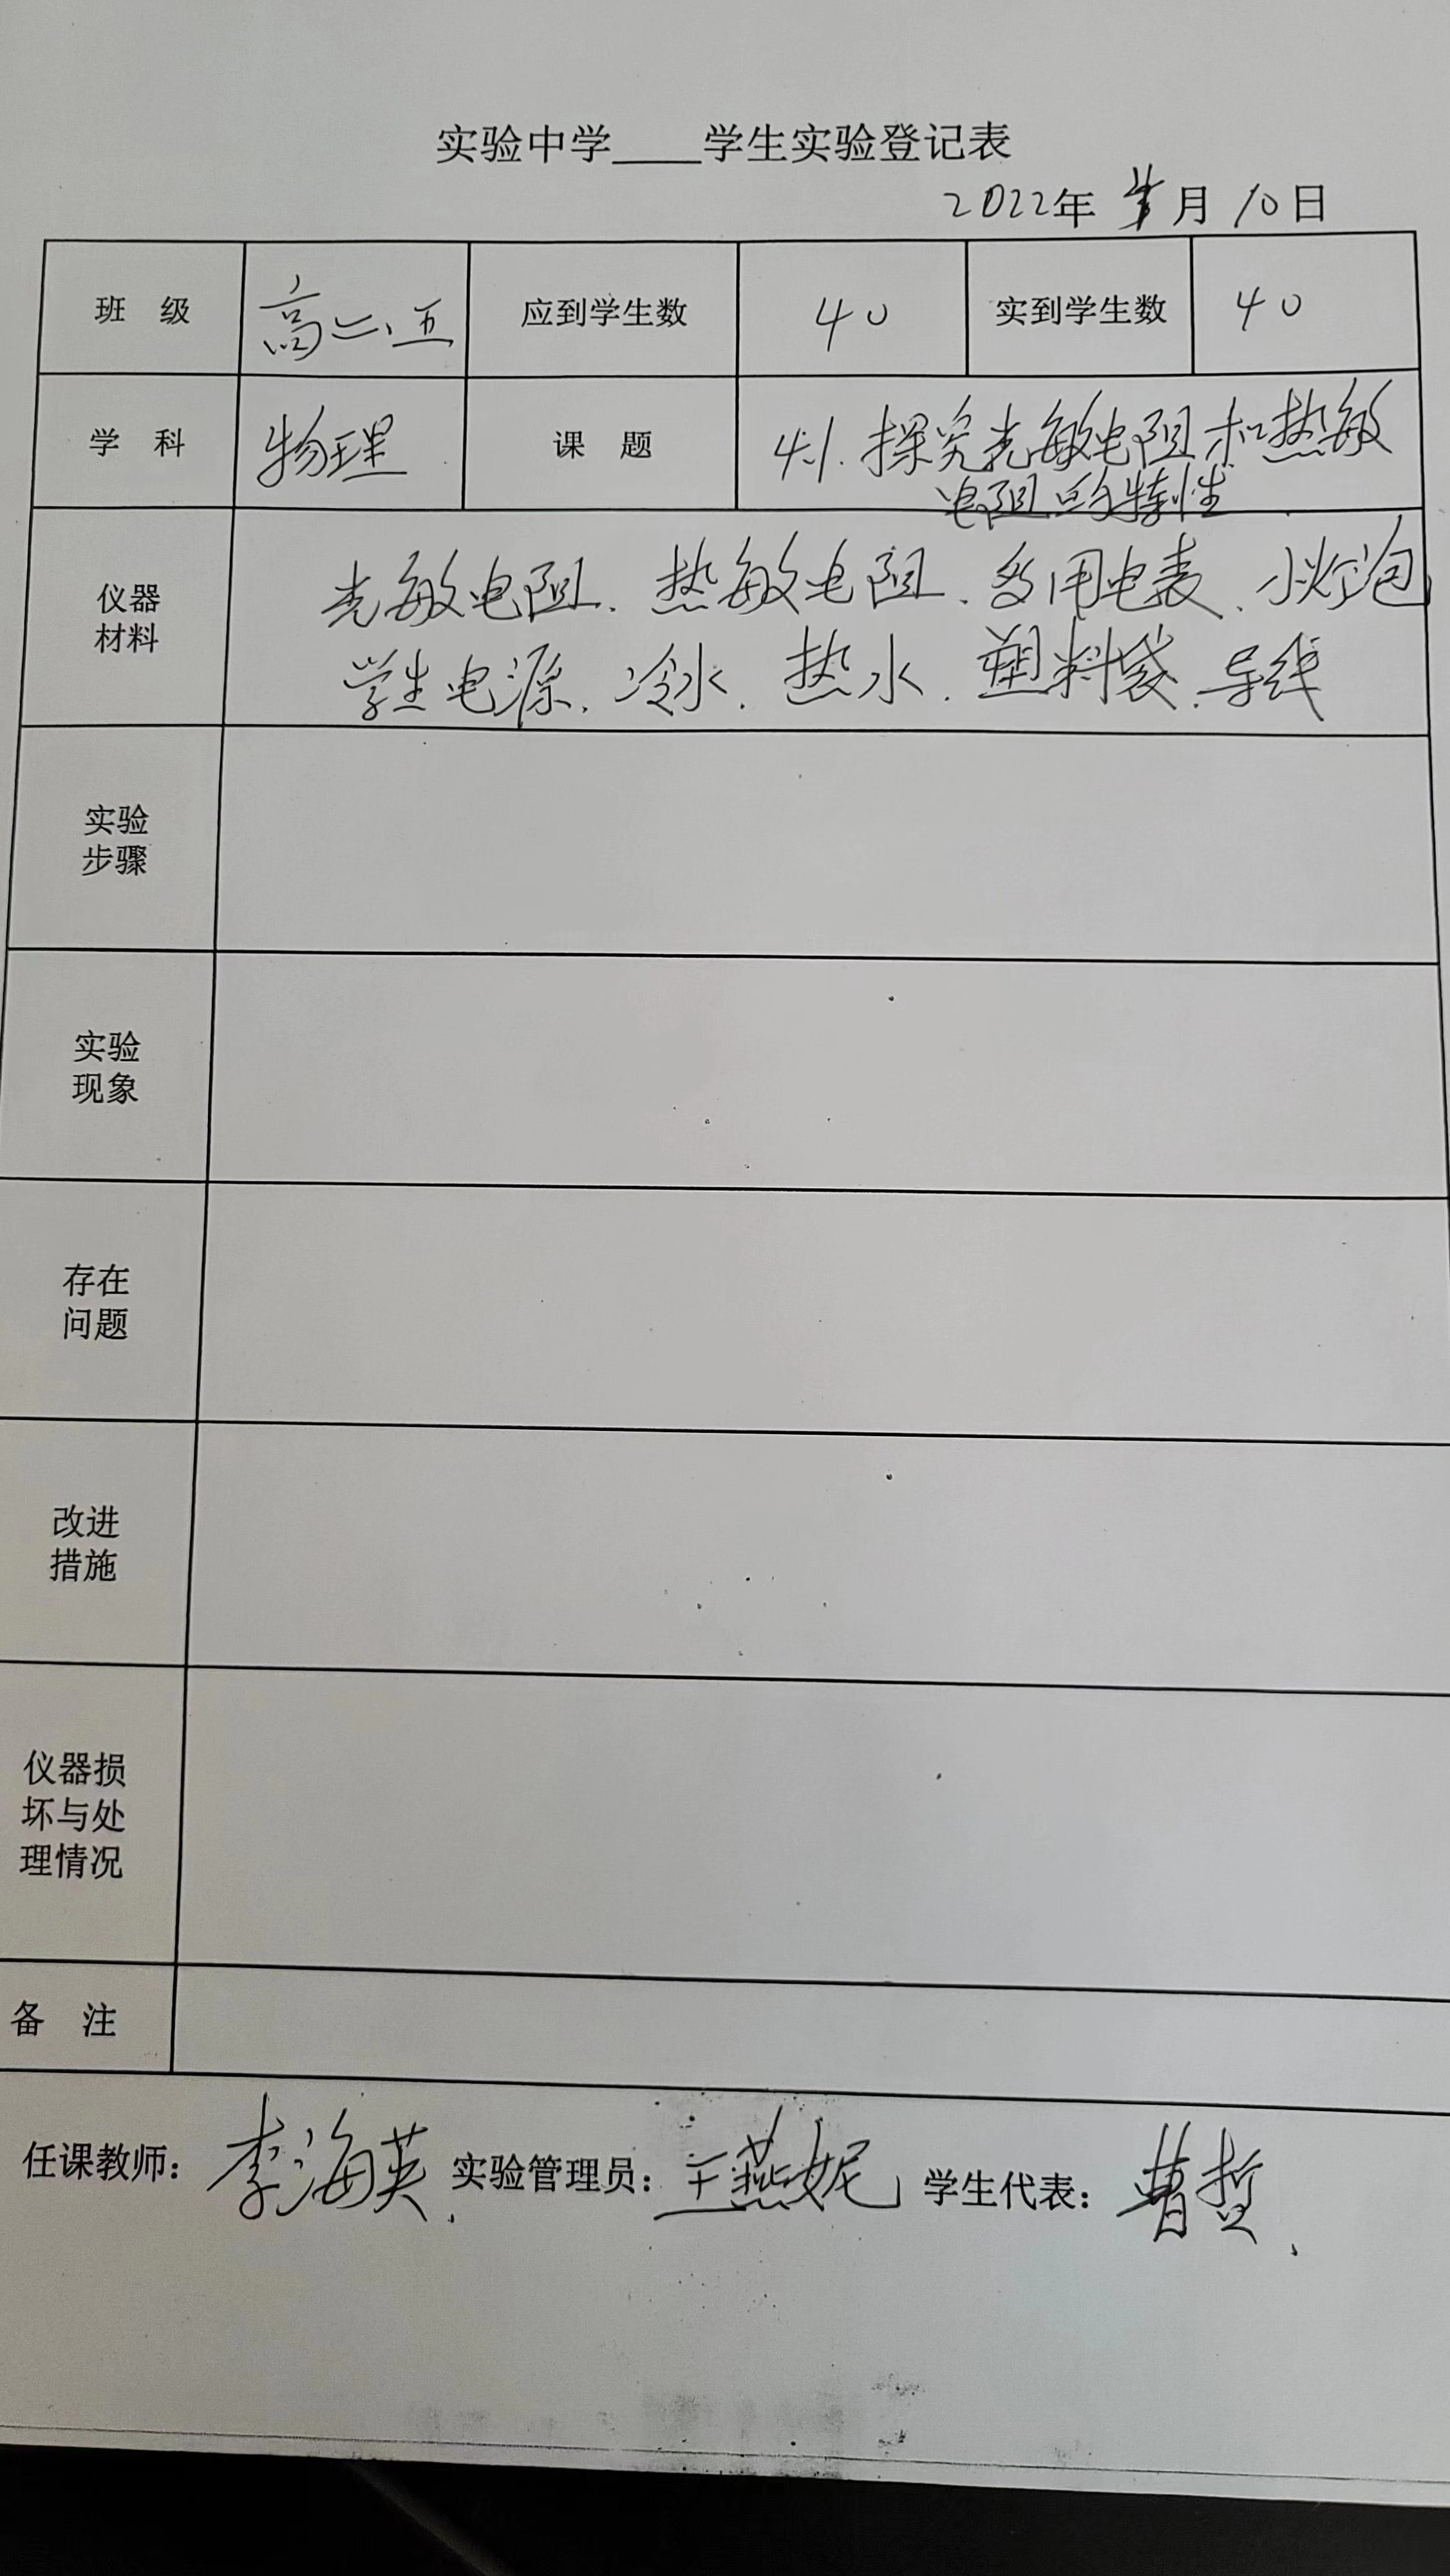 实验中学____学生实验登记表
2022年 月10日
班 级 高二、五 应到学生数 40 实到学生数 40
学 科 物理 课 题 4.1.探究光敏电阻和热敏
电阻的特性
仪器
材料
光敏电阻、热敏电阻、多用电表、小灯泡
学生电源、冷水、热水、塑料袋、导线
实验
步骤
实验
现象
存在
问题
改进
措施
仪器损
坏与处
理情况
备 注
任课教师：李海英. 实验管理员：王燕妮 学生代表：曹哲、